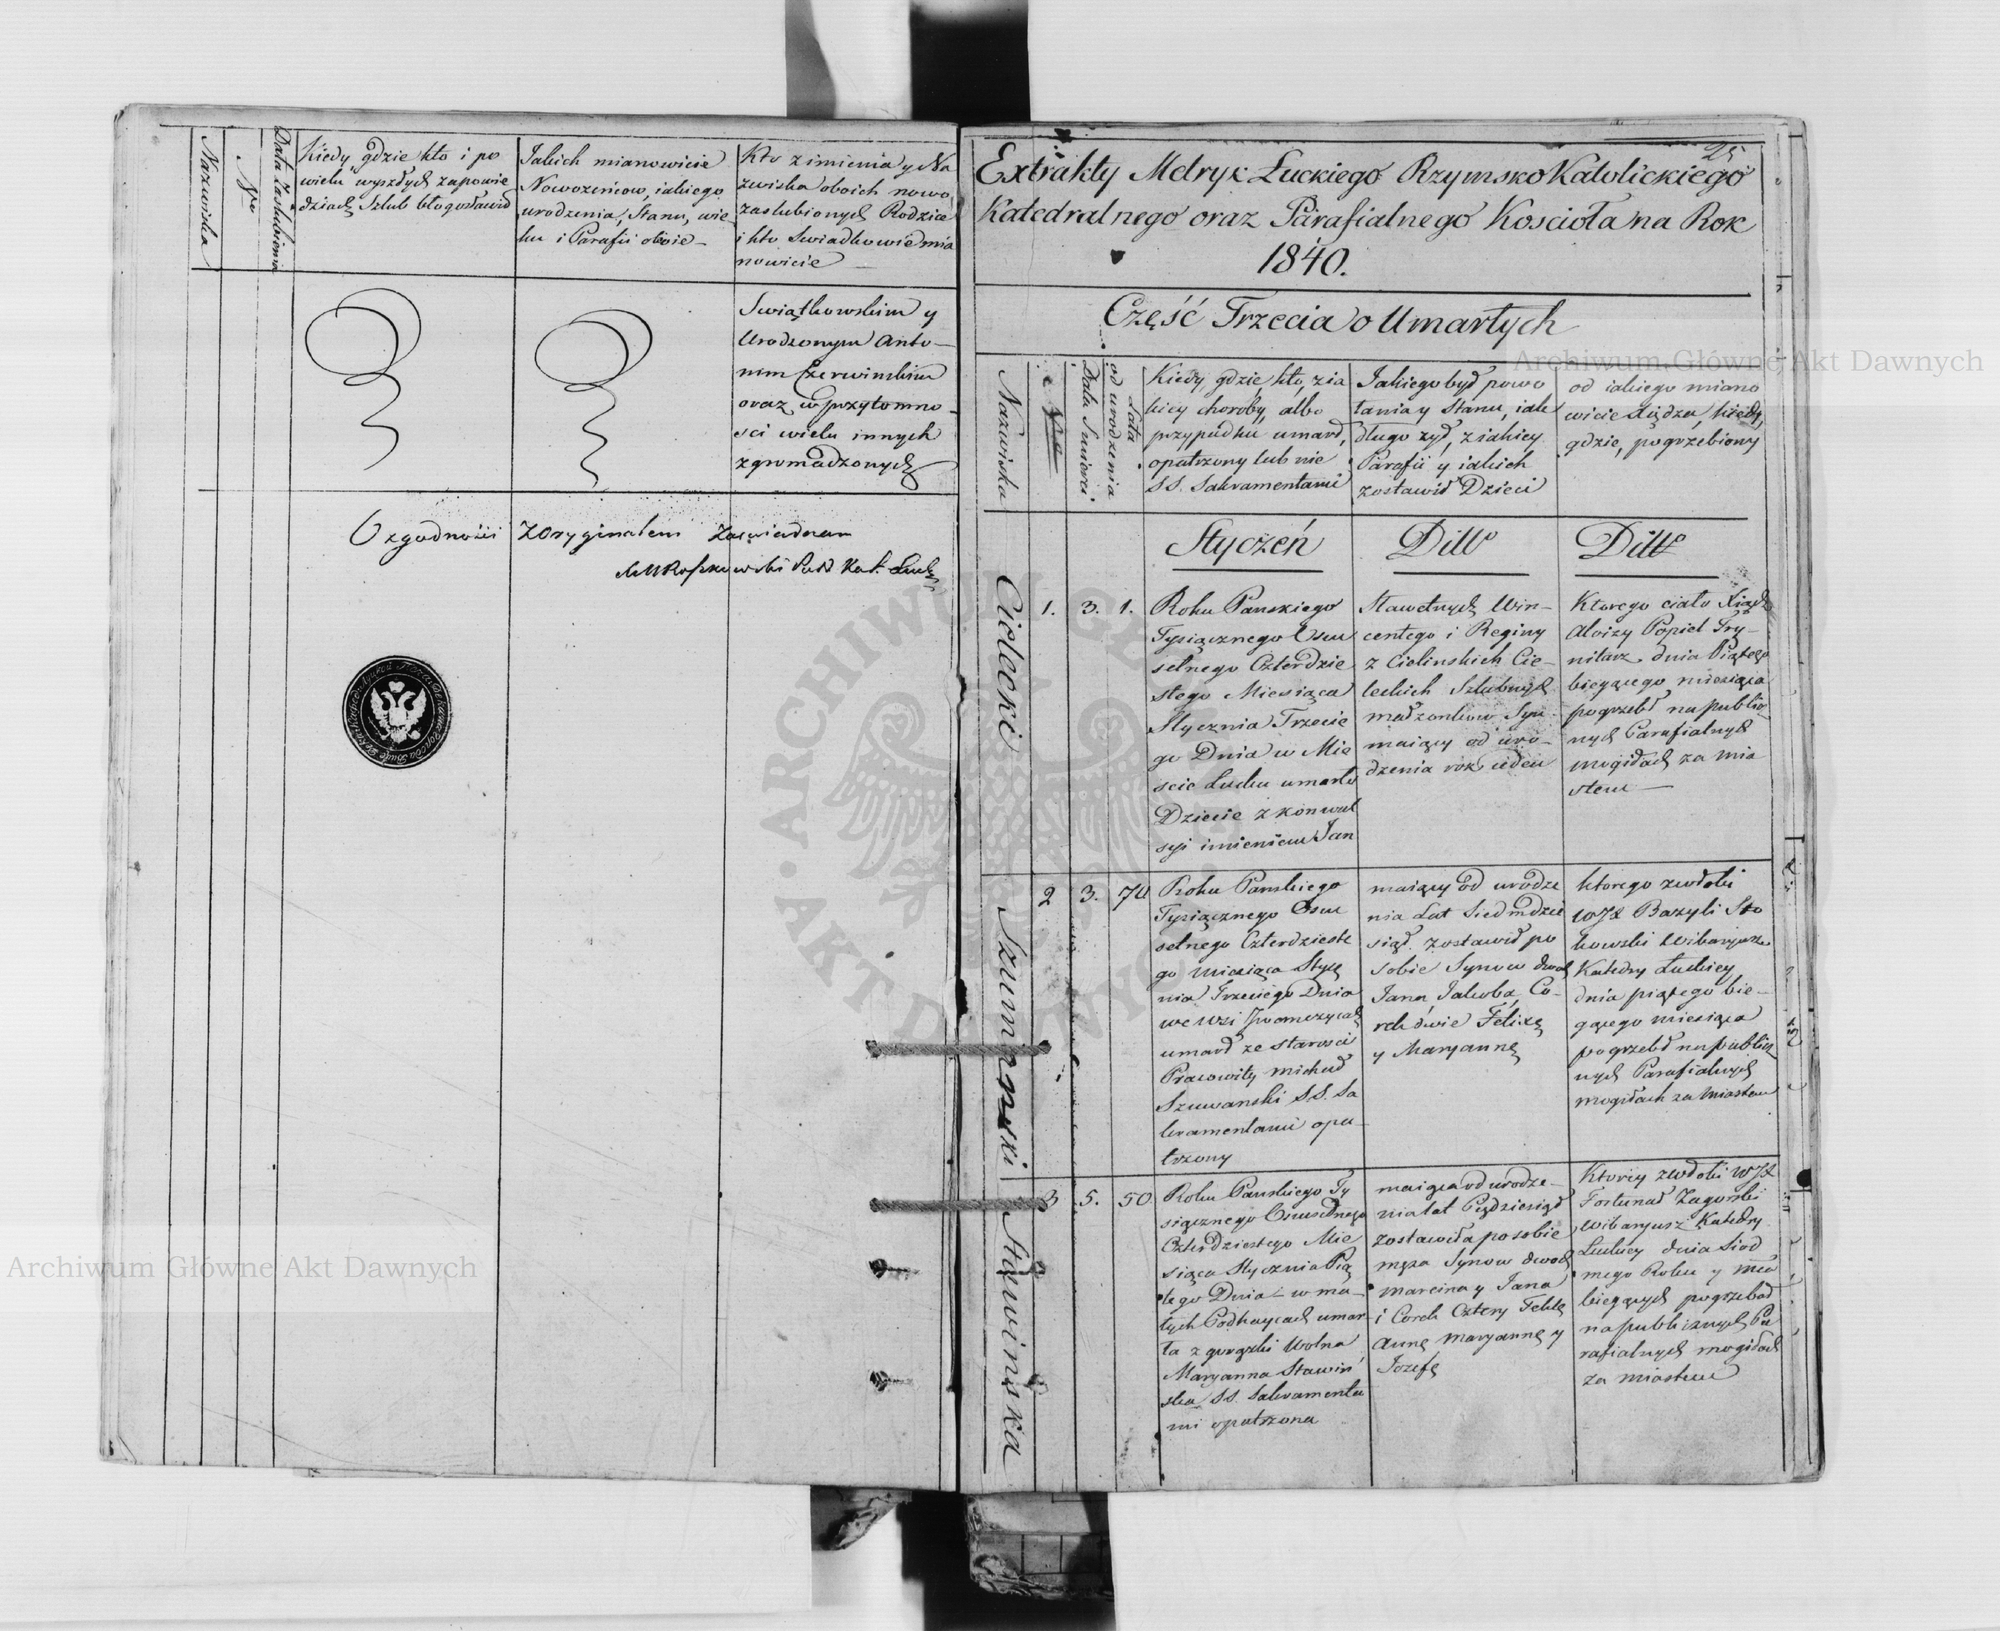 Nazwiska
Nro
Data Zaslubienia
Kiedy, gdzie kto i po
wielu wyszłych zapowie
dziach Szlub błogosławił
Jakich mianowicie
Nowożeńcow, iakiego
urodzenia, Stanu, wie
ku i Parafii oboie
Kto z imienia y Na
zwiska oboich nowo
zaslubionych Rodzice
i kto Swiadkowie mia
nowicie
Swiątkowskim y
Urodzonym Anto-
nim Czerwinskim
oraz w przytomno-
sci wielu innych
zgromadzonych
O zgodności z Oryginałem zaswiadczam
Kat. Łuck.
25
Extrakty Metryk Łuckiego Rzymsko Katolickiego
Katedralnego oraz Parafialnego Koscioła na Rok
1840.
Część Trzecia o Umarłych
Nazwiska
Nro
Data Smierci
Lata
od urodzenia
Kiedy, gdzie, kto, z ia
kiey choroby, albo
przypadku umarł,
opatrzony lub nie
SS. Sakramentami
Jakiego był powo
łania y Stanu, iak
długo żył, z iakiey
Parafii y iakich
zostawił Dzieci
od iakiego miano
wicie Xiędza, kiedy,
gdzie, pogrzebiony
Styczeń
Ditto
Ditto
Cielecki
1.
3.
1.
Roku Panskiego
Tysiącznego Osm
setnego Czterdzie
stego Miesiąca
Stycznia Trzecie
go Dnia w Mie
scie Łucku umarło
Dziecie z konwul
syi imieniem Jan
Sławetnych Win-
centego i Reginy
z Cielinskich Cie-
leckich Szlubnych
małżonkow Syn
maiący od uro-
dzenia rok ieden
Ktorego ciało Xiądz
Aloizy Popiel Try-
nitarz dnia Piątego
bieżącego miesiąca
pogrzebł na publicz
nych Parafialnych
mogiłach za mia
stem
Szumanski
2
3.
70
Roku Panskiego
Tysiącznego Osm
setnego Czterdzieste
go miesiąca Stycz
nia Trzeciego Dnia
we wsi
umarł ze starosci
Pracowity Michał
Szumanski SS. Sa
kramentami opa-
trzony
maiący od urodze
nia Lat Siedmdzie
siąt. zostawił po
sobie Synow dwoch
Jana Jakoba, Co-
rek dwie Felixę
y Maryannę
ktorego zwłoki
WJX Bazyli Sto
kowski Wikaryusz
Katedry Łuckiey
dnia piątego bie-
żącego miesiąca
pogrzebł na publicz
nych Parafialnych
mogiłach za Miastem
Stawinska
3
5.
50
Roku Panskiego Ty
siącznego Osmsetnego
Czterdziestego Mie
siąca Stycznia Pią
tego Dnia w ma-
łych Podhaycach umar
ła z gorączki Wolna
Maryanna Stawin
ska SS. Sakramenta
mi opatrzona
maiąca od urodze-
nia lat Piędziesiąt
zostawiła po sobie
męża Synow dwoch
Marcina y Jana
i Corek Cztery Teklę
Annę Maryannę y
Jozefę
Ktorey zwłoki WJX
Fortunat Zagorski
Wikaryusz Katedry
Łuckiey dnia Siod
mego Roku y Mca
bieżących pogrzebał
na publicznych Pa
rafialnych mogiłach
za miastem
Archiwum Główne Akt Dawnych
Archiwum Główne Akt Dawnych